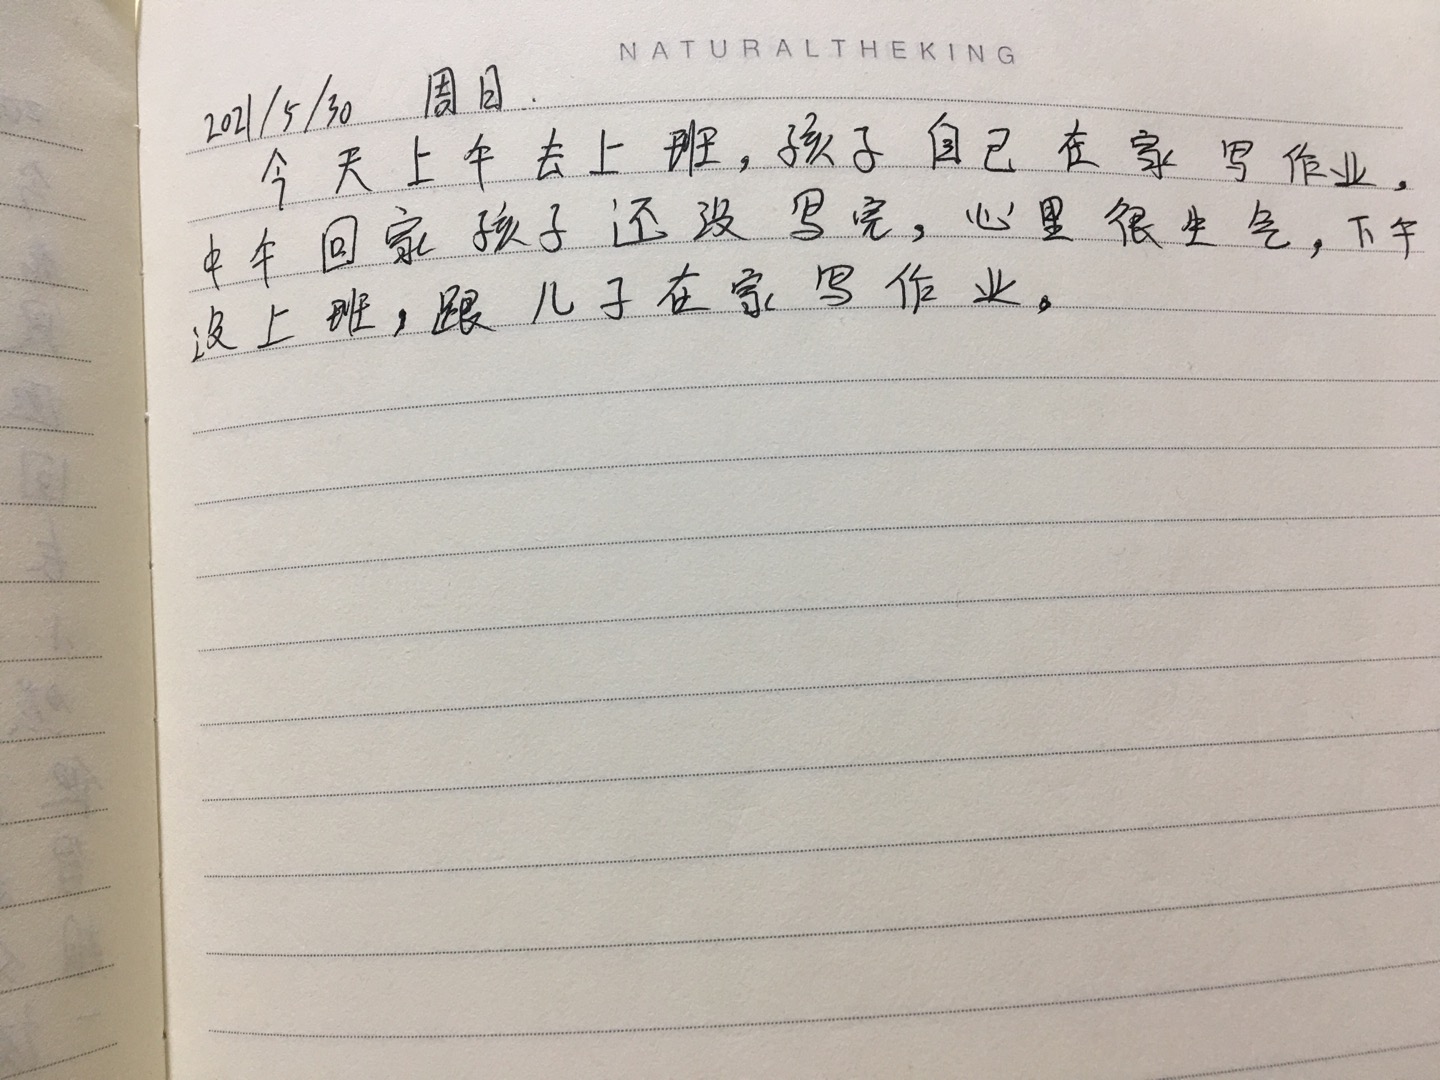 NATURALTHEKING
2021/5/30 周日.
今天上午去上班，孩子自己在家写作业。
中午回家孩子还没写完，心里很生气，下午
没上班，跟儿子在家写作业。